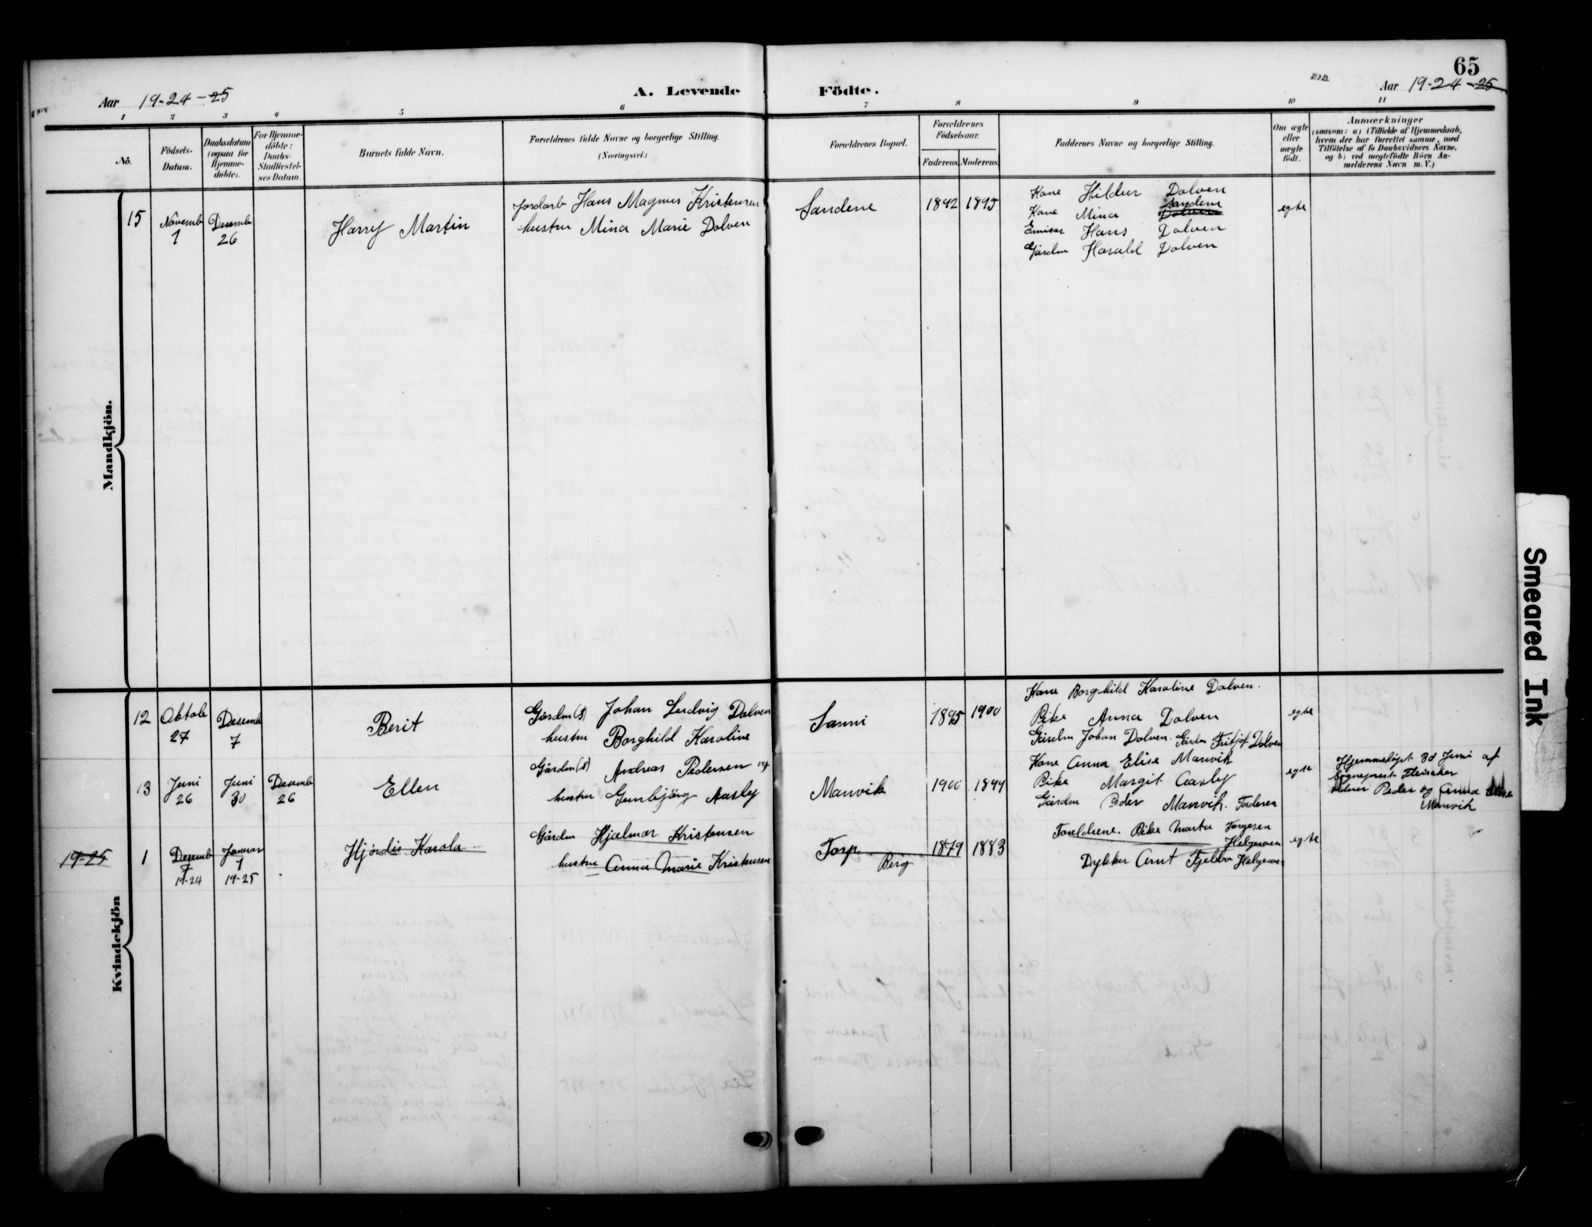 65
Aar 19-24-25
A. Levende Födte.
Aar 19-24-25
1 2 3 4 5 6 7 8 9 10 11
No.
Födsels-
Datum.
Daabsdatum
(ogsaa for
Hjemme-
döbte).
For Hjemme-
döbte:
Daabs-
Stadfæstel-
ses Datum.
Barnets fulde Navn.
Forældrenes fulde Navne og borgerlige Stilling.
(Næringsvei.)
Forældrenes Bopæl.
Forældrenes
Födselsaar.
Faderens. Moderens.
Faddernes Navne og borgerlige Stilling.
Om ægte
eller
uægte
födt.
Anmærkninger
(saasom: a) i Tilfælde af Hjemmedaab,
hvem der har forrettet samme, med
Tilföielse af to Daabsvidners Navne,
og b) ved uægtefödte Börn An-
melderens Navn m. V.)
Mandkjön.
15
Novemb
1
Desemb
26
Harry Martin
Jordarb Hans Magnus Kristensen
hustru Mina Marie Dolven
Sandene
1892 1895
Kone Hildur Dolven
Kone Mina Dolven Sandene
Hans Dolven
Gårdm Harald Dolven
egte
Kvindekjön
12
Oktob
27
Desemb
7
Berit
Gårdm(s) Johan Ludvig Dolven
hustru Borghild Karoline
Sanni
1895 1900
Kone Borghild Karoline Dolven.
Pike Anna Dolven
Gårdm Johan Dolven. Gårdm Fritjof Dolven
egte
13
Juni
26
Juni
30
Desemb
26
Ellen
Gårdm(s) Andreas Pedersen og
hustru Gunbjörg Aasly
Manvik
1900 1899
Kone Anna Elise Manvik
Pike Margit Aasly
Gårdm Peder Manvik. Faderen
egte
Hjemmedöpt 30 Juni af
Sogneprest
Peder og Anna Elise
Manvik
19-25
1
Desemb
7
19-24
Januar
1
19-25
Hjördis Karola
Gårdm Hjalmar Kristensen
hustru Anna Marie Kristensen
Torp
Berg
1879 1883
Foreldrene. Pike Marta Torgersen
Helgeroen
Dykker Arnt Fjeldbo Helgeroen
egte
Smeared Ink